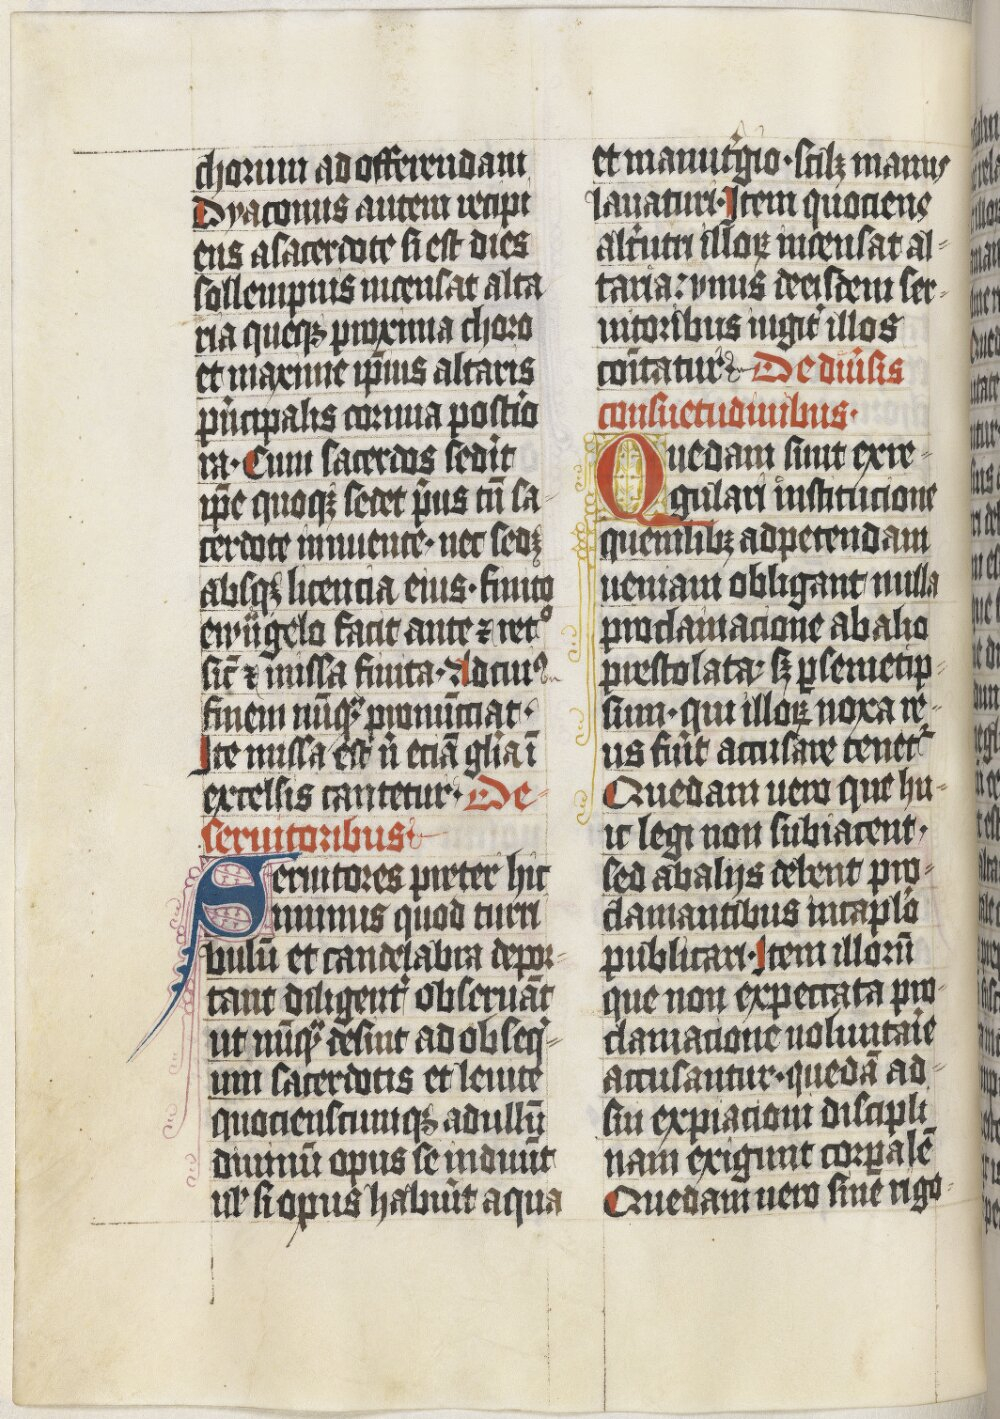 chorum ad offerendam
Dyaconus autem recipi
ens a sacerdote si est dies
sollempnis incensat alta
ria queq₃ proxima choro
et maxime ip̄ius altaris
p̄ncipalis cornua posterio
ra. Cum sacerdos sedit
ip̄e quoq₃ sedet p̄us tn̄ sa-
cerdote innuente. nec sed₃
absq₃ licencia eius. finito
ewāgelo facit ante ⁊ ret°
sic̄ ⁊ missa finita. Ad cui⁹
finem nūq̄ pronūciat.
Ite missa est n̄ eciā gl̄ia ī
excelsis cantetur. De
seruitoribus.
Seruitores preter hic
minus quod turri
bulū et candelabra depor-
tant diligent̄ obseruāt
ut nūq̄ desint ad obseq̄-
um sacerdotis et leuite
quocienscumq₃ ad ullū
diuinū opus se induūt
ul̄ si opus habūit aqua
et manutgio. scil₃ manus
lauaturi. Item quociens
alt̄utri illoꝝ incensat al-
taria: vnus de eisdem ser-
uitoribus iugit̄ illos
comitatur. De diūsis
consuetudinibus.
Quedam sunt ex re-
gulari institucione
quemlib₃ ad petendam
ueniam obligant nulla
proclamacione ab alio
prestolata. s₃ p̱ semetip-
sum. qui illoꝝ noxa re-
us fūit accusare tenet̄
Quedam uero que hu-
ic legi non subiacent.
sed ab alijs debent pro-
clamantibus in cap̄lo
publicari. Item illorū
que non expectata pro-
clamacione uoluntarie
accusantur. quedā ad
sui expiacionem discipli
nam exigunt corp̱alē
Quedam uero sine rigo-